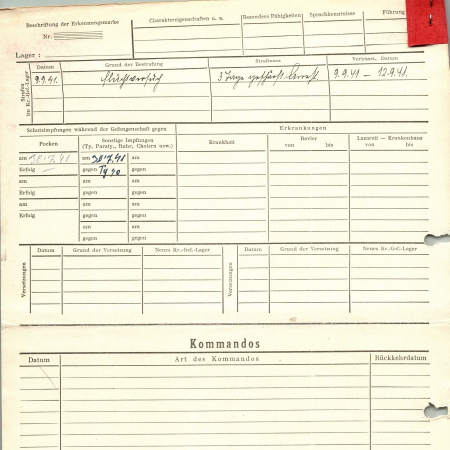 Beschriftung der Erkennungsmarke
Nr.
Charaktereigenschaften u. a.
Besondere Fähigkeiten
Sprachkenntnisse
Führung
Lager :
Strafen im Kr.-Gef.-Lager
Datum
Grund der Bestrafung
Strafmass
Verbüsst, Datum
9.9.41.
Fluchtversuch
3 Tage geschärft. Arrest
9.9.41 — 12.9.41.
Schutzimpfungen während der Gefangenschaft gegen
Erkrankungen
Pocken
Sonstige Impfungen
(Ty. Paraty., Ruhr, Cholera usw.)
Krankheit
Revier
von bis
Lazarett — Krankenhaus
von bis
am 30.7.41 am 30.7.41 am
Erfolg gegen gegen
am am am
Erfolg gegen gegen
am am am
Erfolg gegen gegen
am am
gegen gegen
Versetzungen
Datum
Grund der Versetzung
Neues Kr.-Gef.-Lager
Versetzungen
Datum
Grund der Versetzung
Neues Kr.-Gef.-Lager
Kommandos
Datum
Art des Kommandos
Rückkehrdatum